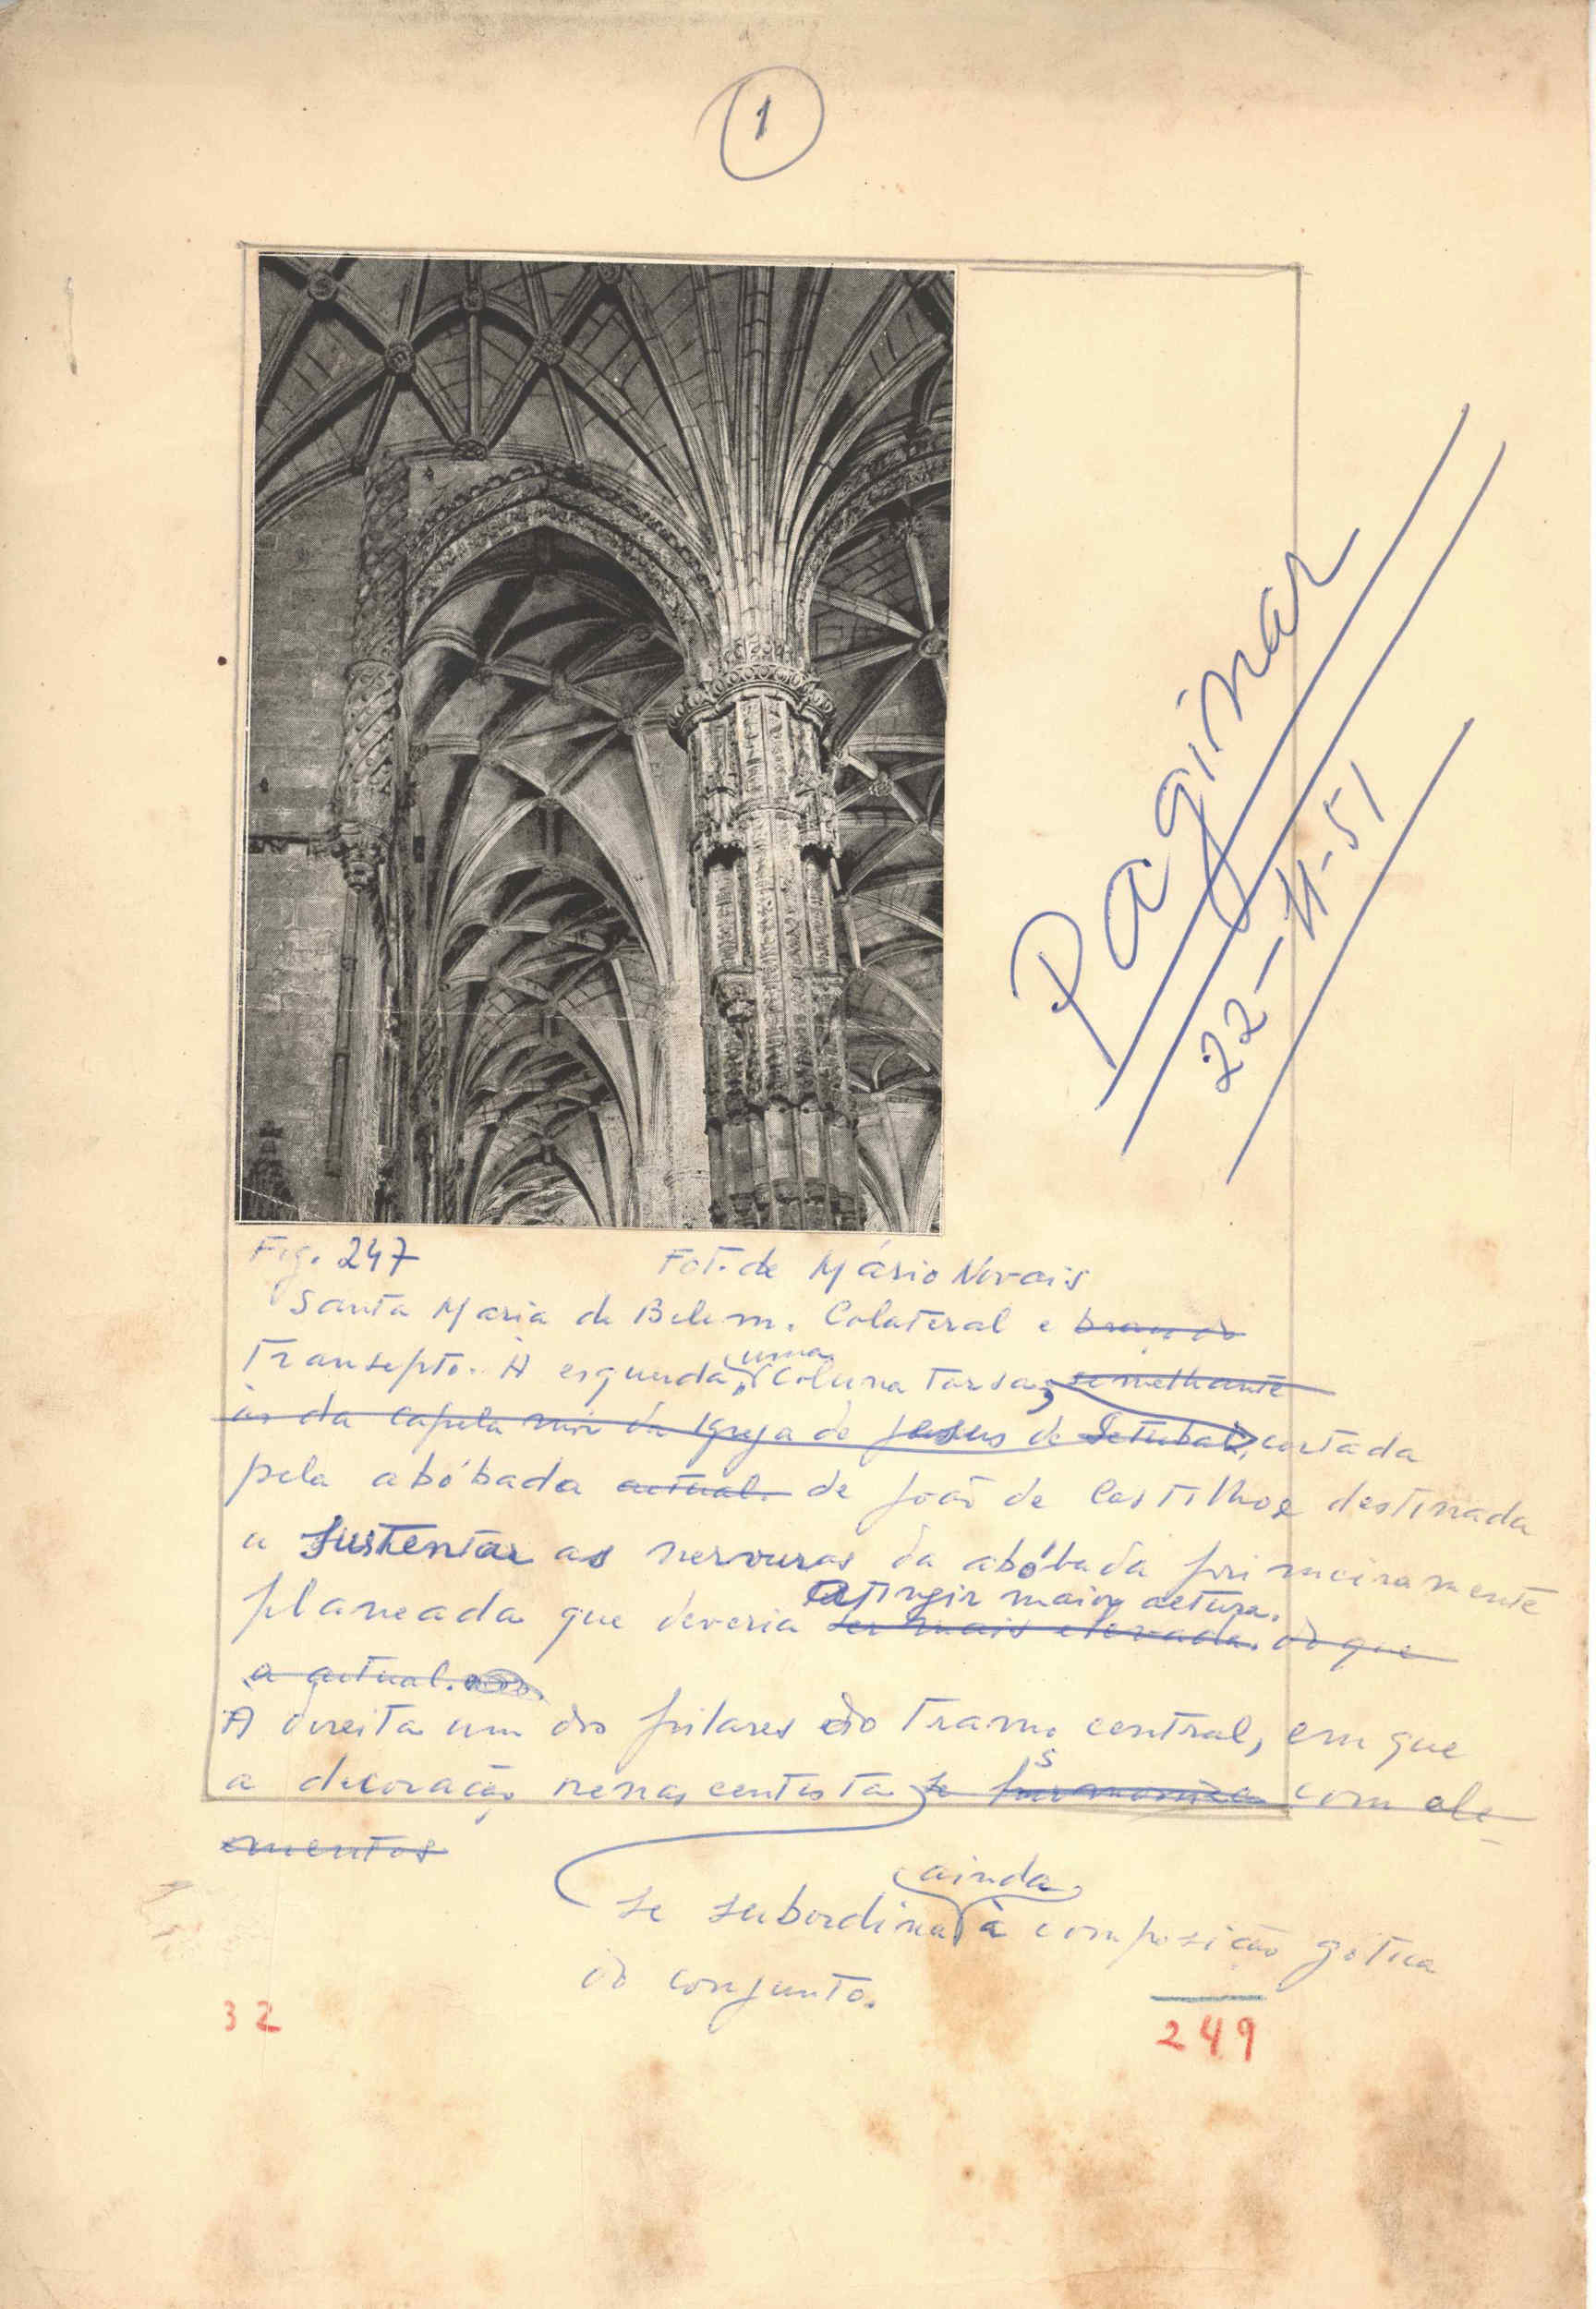 1
Paginar
22-11-51
Fig. 247 Fot. de Mário Novais
Santa Maria de Belem. Colateral e braço do
Transepto. À esquerda, uma coluna torsa, semelhante
às da capela mór da Igreja de Jesus de Setubal, cortada
pela abóbada actual. de João de Castilho e destinada
a sustentar as nervuras da abóbada primeiramente
atingir maior altura.
planeada que deveria ser mais elevada. do que
a actual.
À direita um dos pilares do tramo central, em que
a decoração renascentista se harmonisa com ele
mentos
ainda
se subordina à composição gótica
do conjunto.
32 249